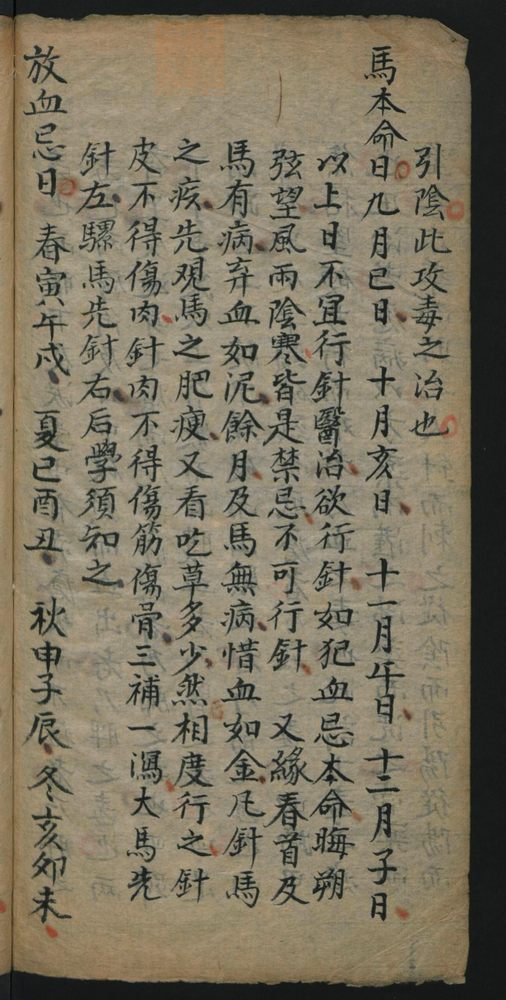 引陰此攻毒之治也
馬本命日九月巳日 十月亥日 十一月午日 十二月子日
以上日不宜行針醫治欲行針如犯血忌本命晦朔
弦望風雨陰寒皆是禁忌不可行針 又緣春首及
馬有病弃血如泥餘月及馬無病惜血如金凡針馬
之疾先观馬之肥瘦又看吃草多少然相度行之針
皮不得傷肉針肉不得傷筋傷骨三補一瀉大馬先
針左騾馬先針右后學須知之
放血忌日 春寅午戌 夏巳酉丑 秋申子辰 冬亥卯未